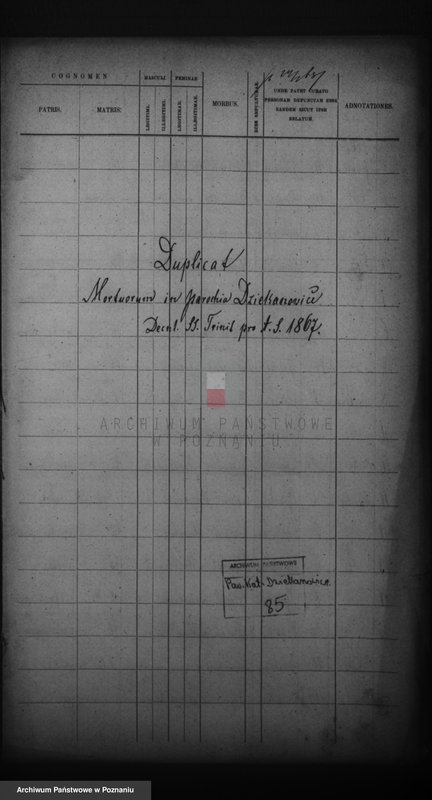 COGNOMEN
MASCULI
FEMINAE
UNDE PATET CURATO
PERSONAM DEFUNCTAM ESSE
EANDEM SICUT IPSE
RELATUM.
PATRIS.
MATRIS:
LEGITIMI.
ILLEGITIMI.
LEGITIMAE.
ILLEGITIMAE.
MORBUS.
DIES SEPULTURAE.
ADNOTATIONES.
Duplicat
Mortuorum in parochia Dziekanowice
Decnt. SS. Trinit pro A. S. 1867.
ARCHIWUM PAŃSTWOWE
W POZNANIU
ARCHIWUM PAŃSTWOWE
Par. Kat. Dziekanowice
85
Archiwum Państwowe w Poznaniu